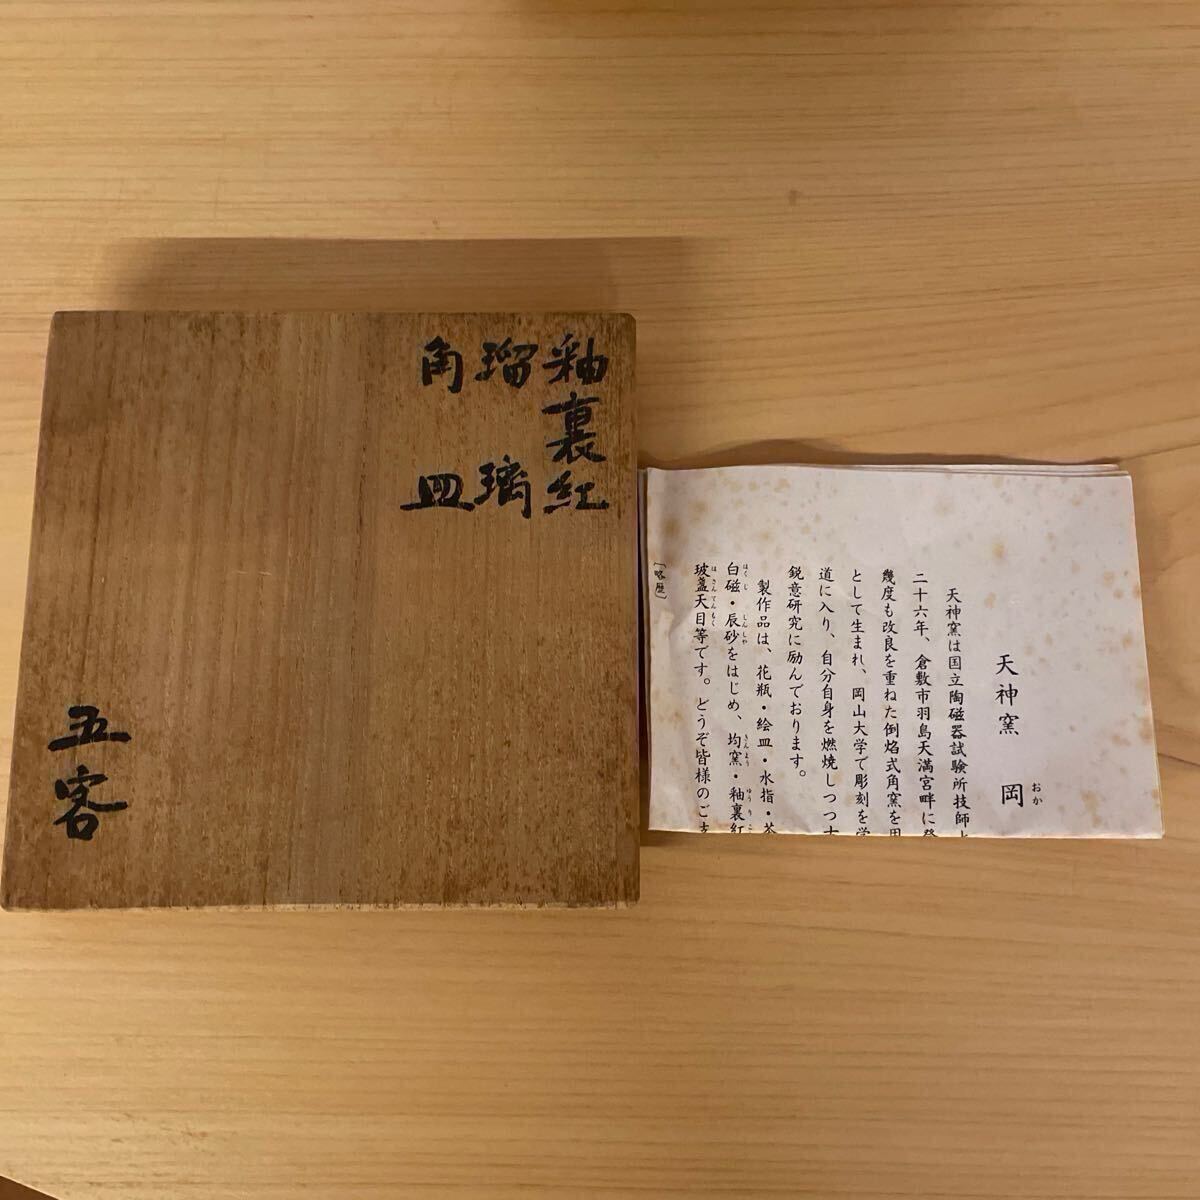 釉裏紅
瑠璃
角皿
五客
天神窯 岡
おか
天神窯は国立陶磁器試験所技師
二十六年、倉敷市羽島天満宮畔に
幾度も改良を重ねた倒焰式角窯を
として生まれ、岡山大学で彫刻を
道に入り、自分自身を燃焼しつつ
鋭意研究に励んでおります。
製作品は、花瓶・絵皿・水指・
白磁・辰砂をはじめ、均窯・釉裏紅
はくじ しんしゃ きんよう ゆうりこ
玻盞天目等です。どうぞ皆様のご
はさんてんもく
〔略歴〕